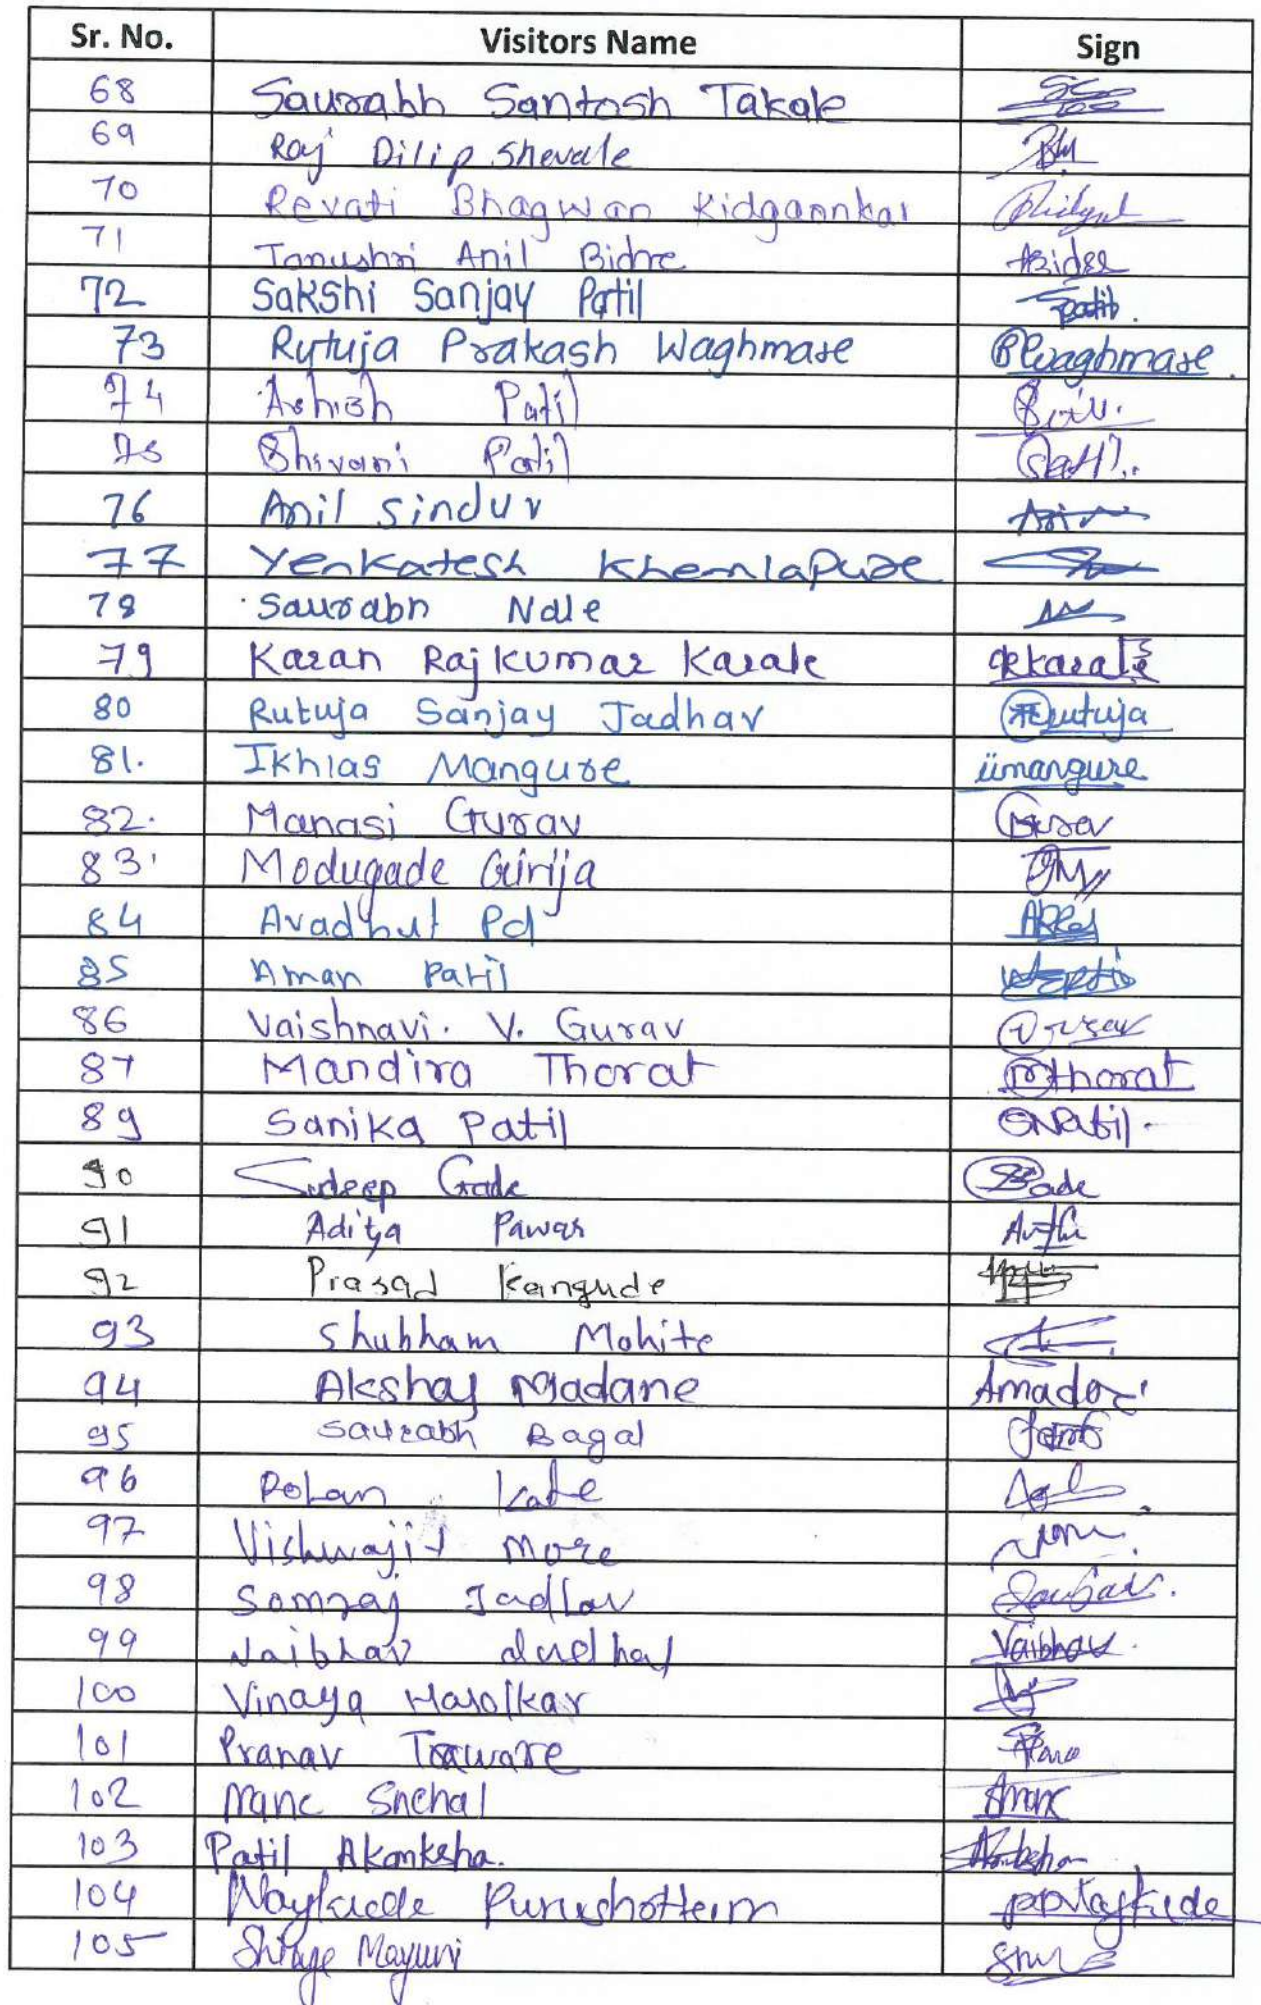 Sr. No. Visitors Name Sign
68 Saurabh Santosh Takale
69 Raj Dilip Shevale
70 Revati Bhagwan Kidgaonkar
71 Tanushri Anil Bidre ABidre
72 Sakshi Sanjay Patil Spatil.
73 Rutuja Prakash Waghmare RWaghmare.
74 Ashish Patil
75 Shivani Patil
76 Anil Sinduv
77 Yenkatesh Khemlapure
78 Saurabh Nale
79 Karan Rajkumar Karale
80 Rutuja Sanjay Jadhav Rutuja
81. Ikhlas Mangure iimangure
82. Manasi Gurav Gurav
83. Modugade Girija GM
84 Avadhut Pol
85 Aman Patil
86 Vaishnavi. V. Gurav Gurav
87 Mandira Thorat mthorat
89 Sanika Patil SNPatil
90 Sudeep Gade SGade
91 Aditya Pawar
92 Prasad Kangude
93 Shubham Mohite
94 Akshay Madane
95 Saurabh Bagal
96 Rohan Kate
97 Vishwajit More
98 Somraj Jadhav
99 Vaibhav Vaibhav
100 Vinaya
101 Pranav Taware
102 Mane Snehal Amane
103 Patil Akanksha.
104 Naykude Purushottam ppNaykude
105 Shinge Mayuri